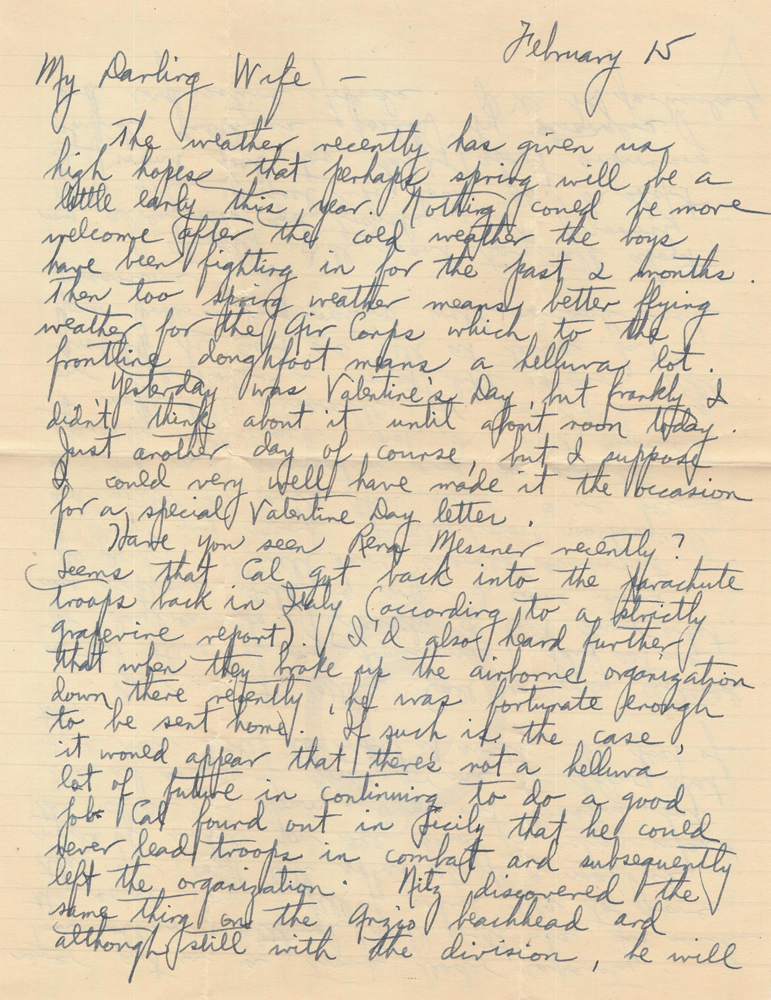 February 15
My Darling Wife —
The weather recently has given us
high hopes that perhaps spring will be a
little early this year. Nothing could be more
welcome after the cold weather the boys
have been fighting in for the past 2 months.
Then too spring weather means better flying
weather for the Air Corps which to the
frontline doughfoot means a helluva lot.
Yesterday was Valentine's Day, but frankly I
didn't think about it until about noon today.
Just another day of course, but I suppose
I could very well have made it the occasion
for a special Valentine Day letter.
Have you seen Rena Messner recently?
Seems that Cal got back into the parachute
troops back in Italy (according to a strictly
grapevine report). I'd also heard further
that when they broke up the airborne organization
down there recently, he was fortunate enough
to be sent home. If such is the case,
it would appear that there's not a helluva
lot of future in continuing to do a good
job. Cal found out in Sicily that he could
never lead troops in combat and subsequently
left the organization. Nitz discovered the
same thing on the Anzio beachhead and
although still with the division, he will